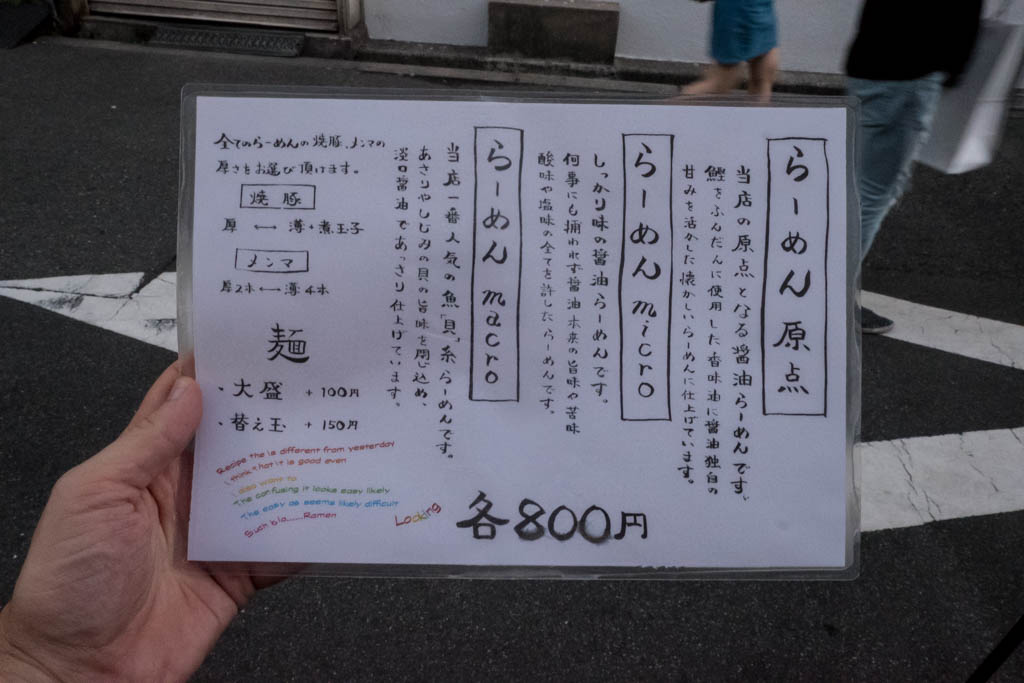 らーめん原点
当店の原点となる醤油らーめんです、
鰹をふんだんに使用した香味油に醤油独自の
甘みを活かした懐かしいらーめんに仕上げています。
らーめんmicro
しっかり味の醤油らーめんです。
何事にも捕われず醤油本来の旨味や苦味
酸味や塩味の全てを許したらーめんです。
らーめんmacro
当店一番人気の魚「貝」系らーめんです。
あさりやしじみの貝の旨味を閉じ込め、
淡口醤油であっさり仕上げています。
各800円
全てのらーめんの焼豚、メンマの
厚さをお選び頂けます。
焼豚
厚 ↔ 薄+煮玉子
メンマ
厚2本 ↔ 薄4本
麺
・大盛 +100円
・替え玉 +150円
Recipe the is different from yesterday
i think that it is good even
i also want to
The confusing it looks easy likely
The easy as seems likely difficult
Such bla......Ramen
Looking